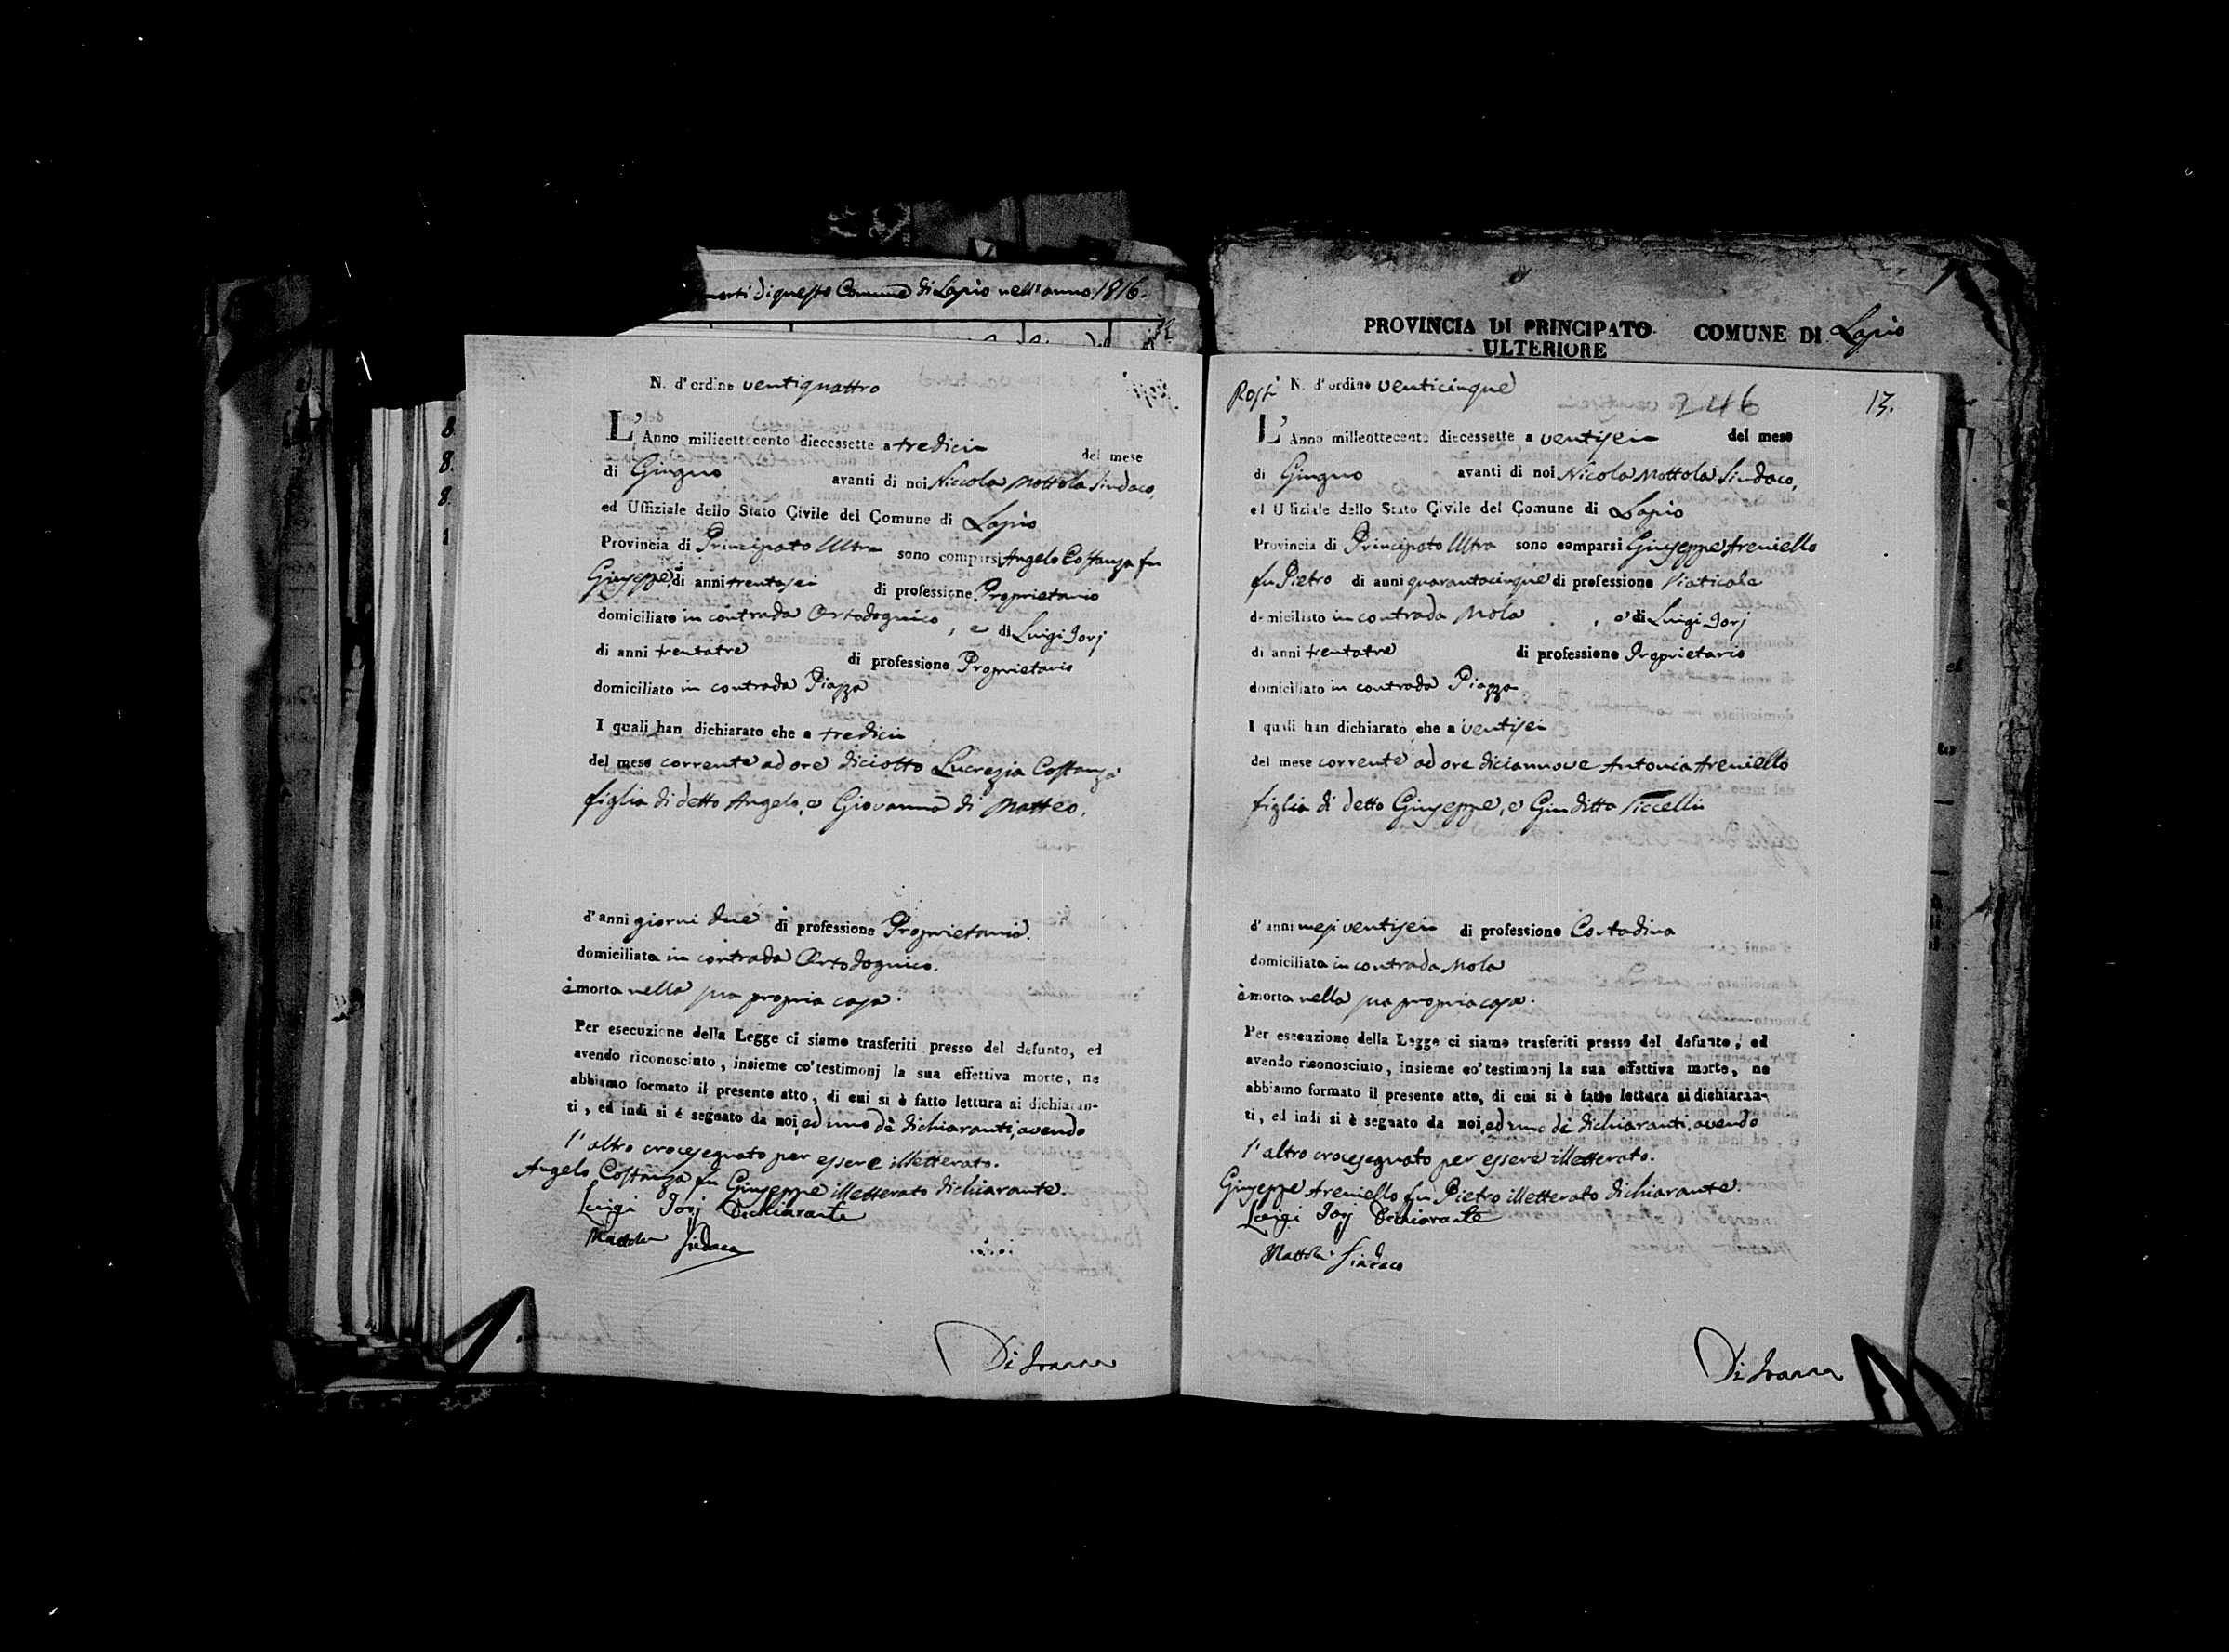 morti di questo Comune di Lapio nell'anno 1816.
N. d'ordine ventiquattro
L'Anno milleottocento diecessette a tredici del mese
di Giugno avanti di noi Niccola Mottola Sindaco,
ed Uffiziale dello Stato Civile del Comune di Lapio
Provincia di Principato Ultra sono comparsi Angelo Costanza fu
Giuseppe di anni trentasei di professione Proprietario
domiciliato in contrada Ortodognico, e di Luigi Jorj
di anni trentatre di professione Proprietario
domiciliato in contrada Piazza
I quali han dichiarato che a tredici
del mese corrente ad ore diciotto Lucrezia Costanza
figlia di detto Angelo, e Giovanna di Matteo.
d'anni giorni due di professione Proprietaria.
domiciliata in contrada Ortodognico.
è morta nella sua propria casa.
Per esecuzione della Legge ci siamo trasferiti presso del defunto, ed
avendo riconosciuto, insieme co' testimonj la sua effettiva morte, ne
abbiamo formato il presente atto, di cui si è fatto lettura ai dichiaran-
ti, ed indi si é segnato da noi, ed uno dè dichiaranti, avendo
l'altro crocesegnato per essere illetterato.
Angelo Costanza fu Giuseppe illetterato dichiarante.
Luigi Jorj Dichiarante
Mottola Sindaco
PROVINCIA DI PRINCIPATO COMUNE DI Lapio
ULTERIORE
N. d'ordine venticinque
246
13.
L'Anno milleottecento diecessette a ventisei del mese
di Giugno avanti di noi Nicola Mottola Sindaco,
ed Uffiziale dello Stato Civile del Comune di Lapio
Provincia di Principato Ultra sono comparsi Giuseppe Areniello
fu Pietro di anni quarantacinque di professione Viaticale
domiciliato in contrada Mola, e di Luigi Jorj
di anni trentatre di professione Proprietario
domiciliato in contrada Piazza
I quali han dichiarato che a ventisei
del mese corrente ad ore diciannove Antonia Areniello
figlia di detto Giuseppe, e Giuditta Siccelli
d'anni mesi ventisei di professione Contadina
domiciliata in contrada Mola
è morta nella sua propria casa.
Per esecuzione della Legge ci siamo trasferiti presso del defunto, ed
avendo riconosciuto, insieme co' testimonj la sua effettiva morte, ne
abbiamo formato il presente atto, di cui si è fatto lettura ai dichiaran-
ti, ed indi si è segnato da noi, ed uno dè dichiaranti, avendo
l'altro crocesegnato per essere illetterato.
Giuseppe Areniello fu Pietro illetterato dichiarante.
Luigi Jorj Dichiarante
Mottola Sindaco